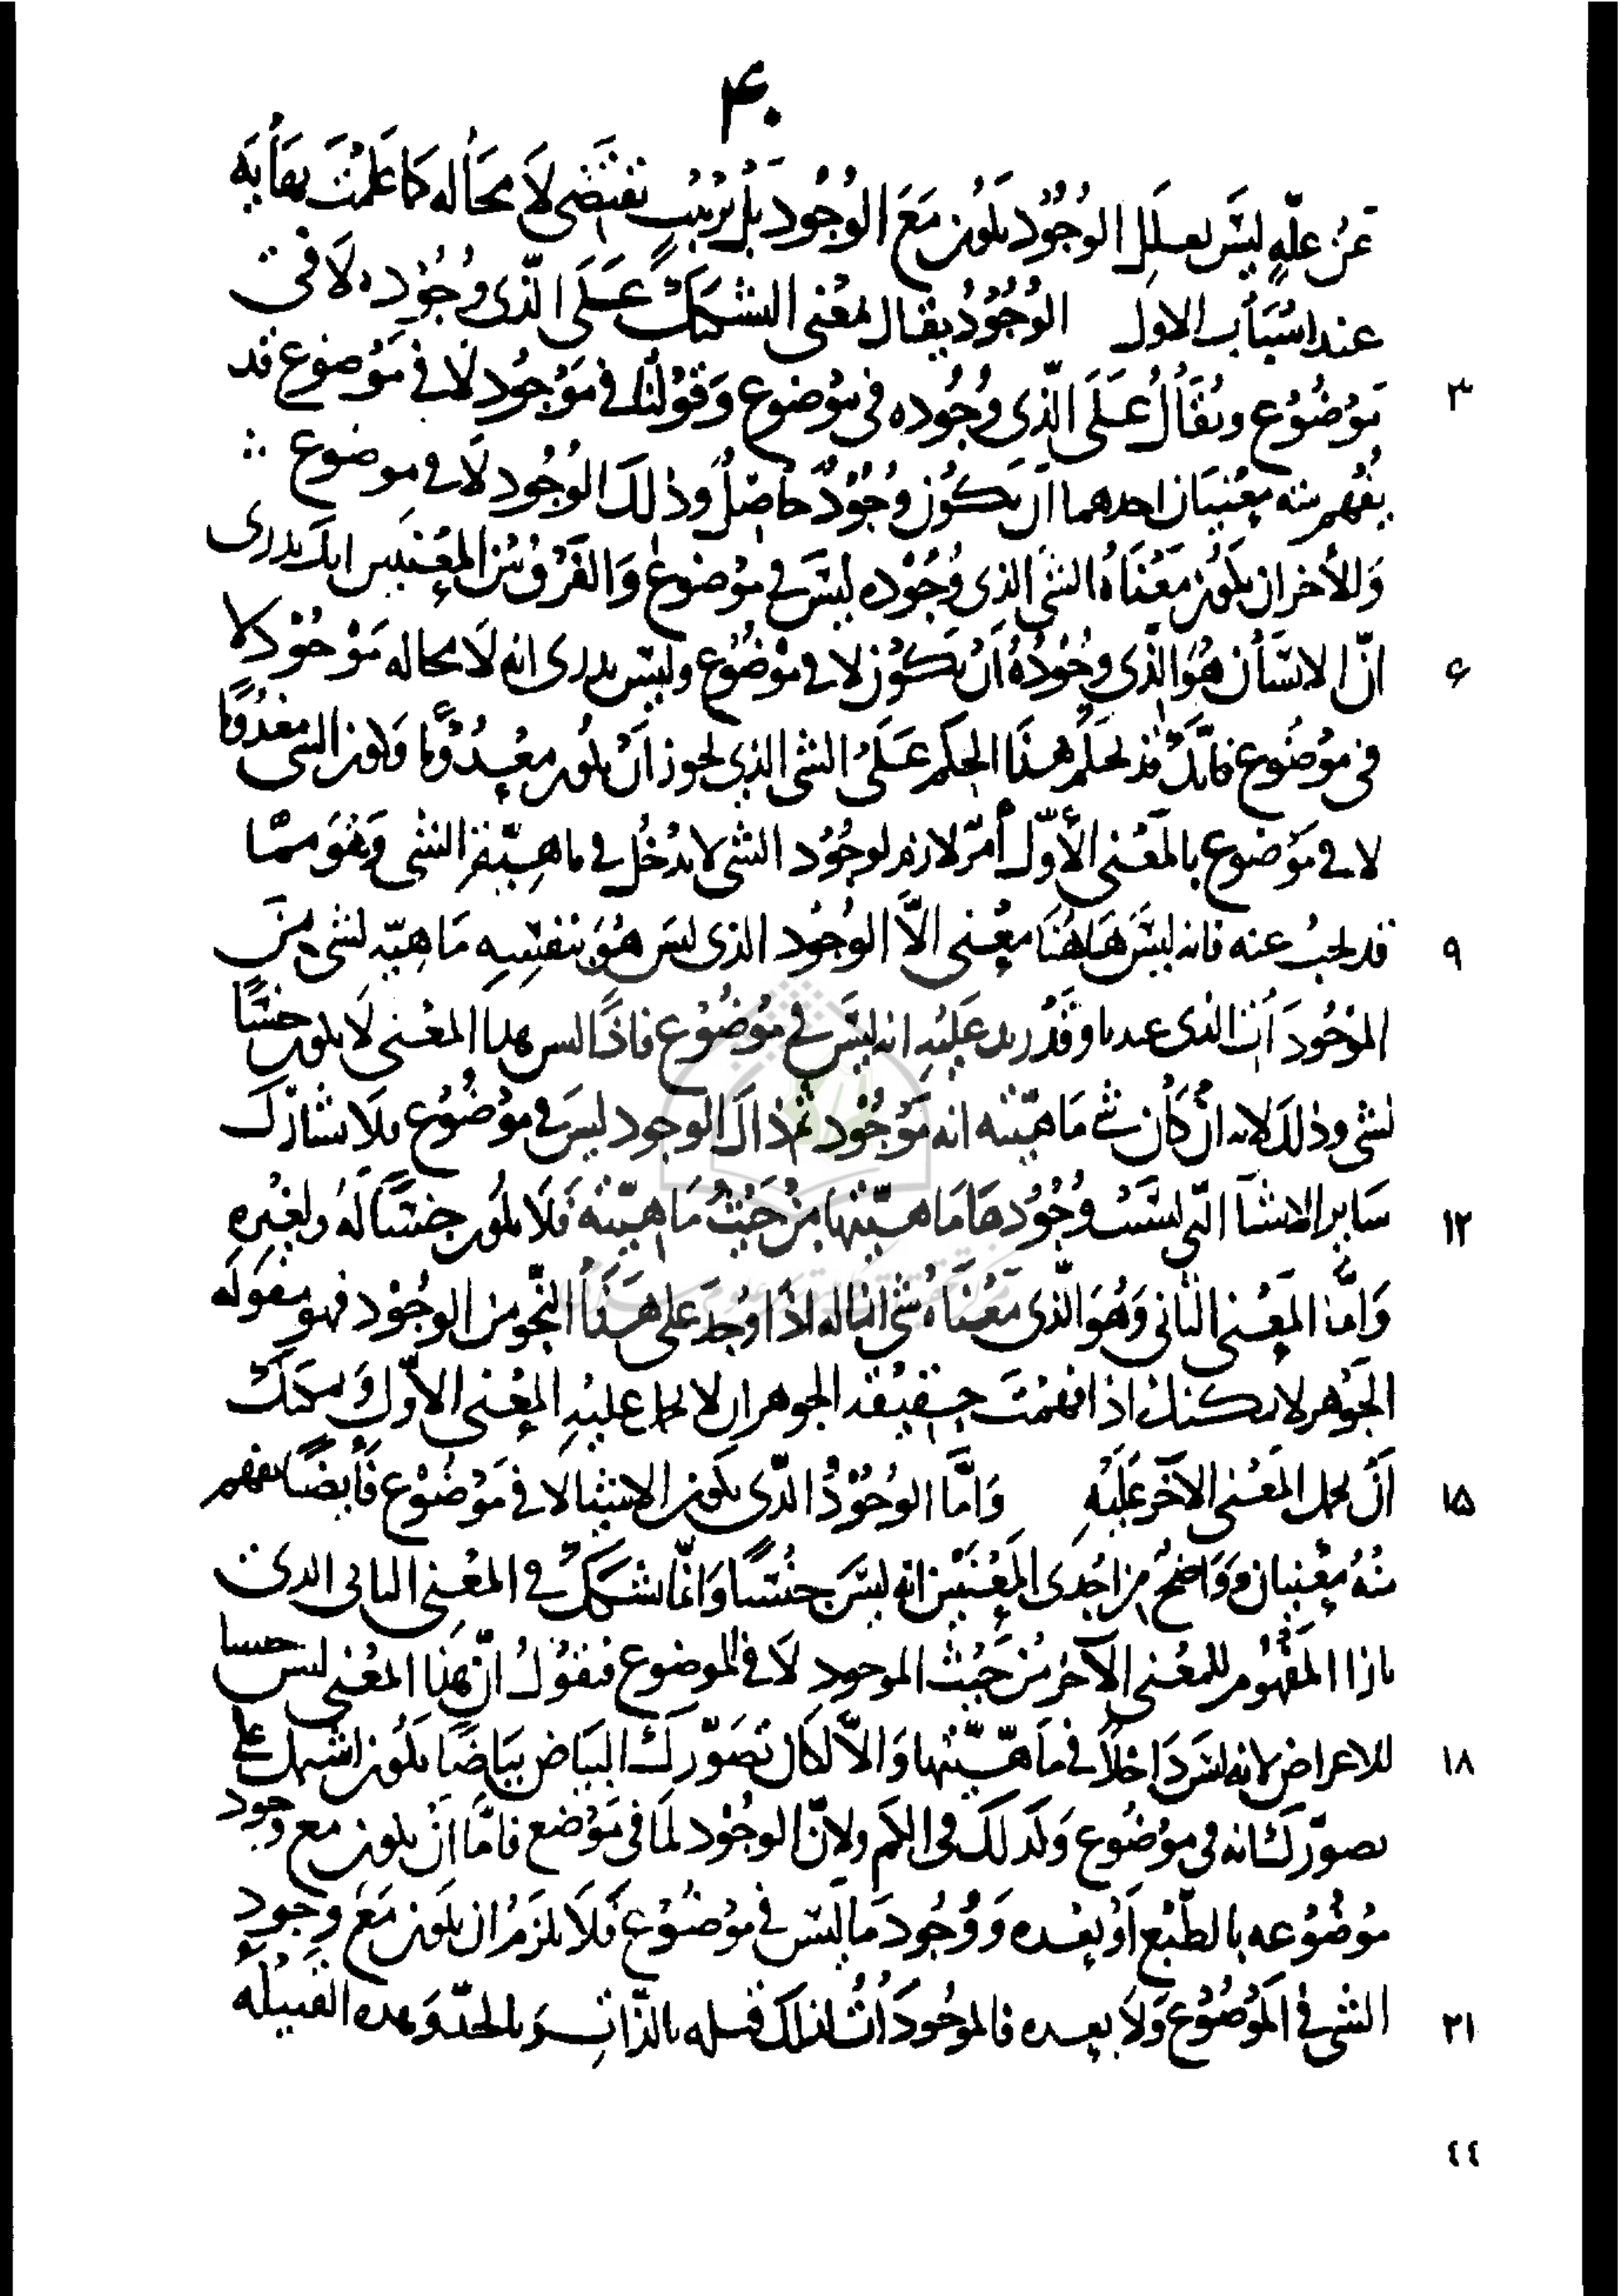 ۴۰
عن علّةٍ ليس بعلل الوُجُوْد يكون مَعَ الوُجُود بل ترتيب تقتضى لَا محاله كما عَلمْتَ بهَأيَه
عند اسبَاب الاول الوُجُوْدُ يقال بمعنى التشكك عَلَى الّذى وُجُوْده لَا فى
مَوْضُوْع ويُقَالُ عَلَى الّذِى وُجُوده فى مَوْضوع وَقوْلنَا فى مَوْجُود لَا فى مَوْضوع قد
يُفْهم منه مَعْنيَان احدهما ان يَكُوْن وُجُوْدٌ حَاصِلٌ وذلك الوُجُود لَا فى موضوع
وَللأخر ان يكون مَعْنَاهُ الشئ الذى وُجُوْده ليسَ فى مَوْضوع وَالفَرْقُ بَيْن المَعْنَيَيْن انك تدرى
انّ الانسَأن هُوَ الّذى وجُوْدُهُ اَنْ يَكوُن لا فى مَوْضُوع وليسَ تدرى انه لَا محاله مَوْجُوْد لا
فى مَوْضُوع فانّكَ قد تحكم هذَا الحكم عَلَى الشئ الذى يجوز اَنْ يكون معْدُوْمًا وكون الشئ معْدُوْمًا
لا فى مَوْضوع بالمَعْنى الأوّل أمرٌ لازم لوجُوْد الشئ لا يدْخُل فى ماهيّة الشئ وَهُوَ ممّا
قد يجبُ عنه فانه ليسَ هَاهُنَا معْنى الَّا الوُجُود الذى ليس هُوَ بنفسِه مَاهيّه لشئ من
الموْجُودَأت الذى عندنا وقَدْ زيد عَلَيْهِ انه ليسَ فى مَوْضُوْع فاذًا ليس هذا المعْنى لَا يكون جنْسًا
لشئ وذلك لانه انْ كَأن شئ مَاهيّته انه مَوْجُوْد ثم ذاك الوجود ليسَ فى موْضُوْع فلا يشارك
سَاير الاشيَا الّتى ليْسَتْ وُجُوْدهَا مَاهيّتها من حَيْثُ مَاهيّته فَلَا يكُون جنْسًا لَهُ ولغيْرِهِ
وَامّا المَعْنى الثانى وَهُوَ الّذى مَعْنَاهُ شئ انما له اذَا وُجدَ على هذَا النّحو من الوجُوْد فهو مقولَه
الجَوْهر لا يمكنك اذا فهمْتَ حقيقه الجوهر ان لا تحمل عليْهِ المعْنى الاوّل وَيمكنك
اَنْ تحمل المَعْنى الآخر عَلَيْهِ وَامَّا الوُجُوْدُ الّذى يكون الاشيَا لا فى مَوْضُوْع فَأيضًا يفهم
منْهُ معْنيان وَوَاضحٌ من احْدى المَعْنيَيْن انه ليسَ جنْسًا وَانّمَا يشكك فى المعْنى الثانى الذى
بازا المفْهُوْم للمعْنى الآخر مِن حَيْث الموجود لَا فى الموضوع فنقوُلُ انّ هذا المعْنى ليس جنسا
للاعراض لانه ليْسَ دَاخلًا فى مَاهيّتها وَالّا لكَان تصَوّرك البيَاض بيَاضًا يكون اشتمل على
تصوّرك انه فى موْضُوْع وَكذلك فى الكم ولانّ الوجُوْد لمَا فى مَوْضع فامّا انْ يكون مع وجود
مُوضُوْعه بالطّبْع اَوْ بعْده وَوُجُود مَا ليسَ فى موْضُوْع فَلَا يلزمُ ان يكون مَعَ وجُود
الشئ فى المَوْضُوْع وَلَا بعده فالموجُودَأت لذلك قبله بالذّات وَبالحدّ وَهذه القَبيْلَه
۳
۶
۹
۱۲
۱۵
۱۸
۲۱
٤٤